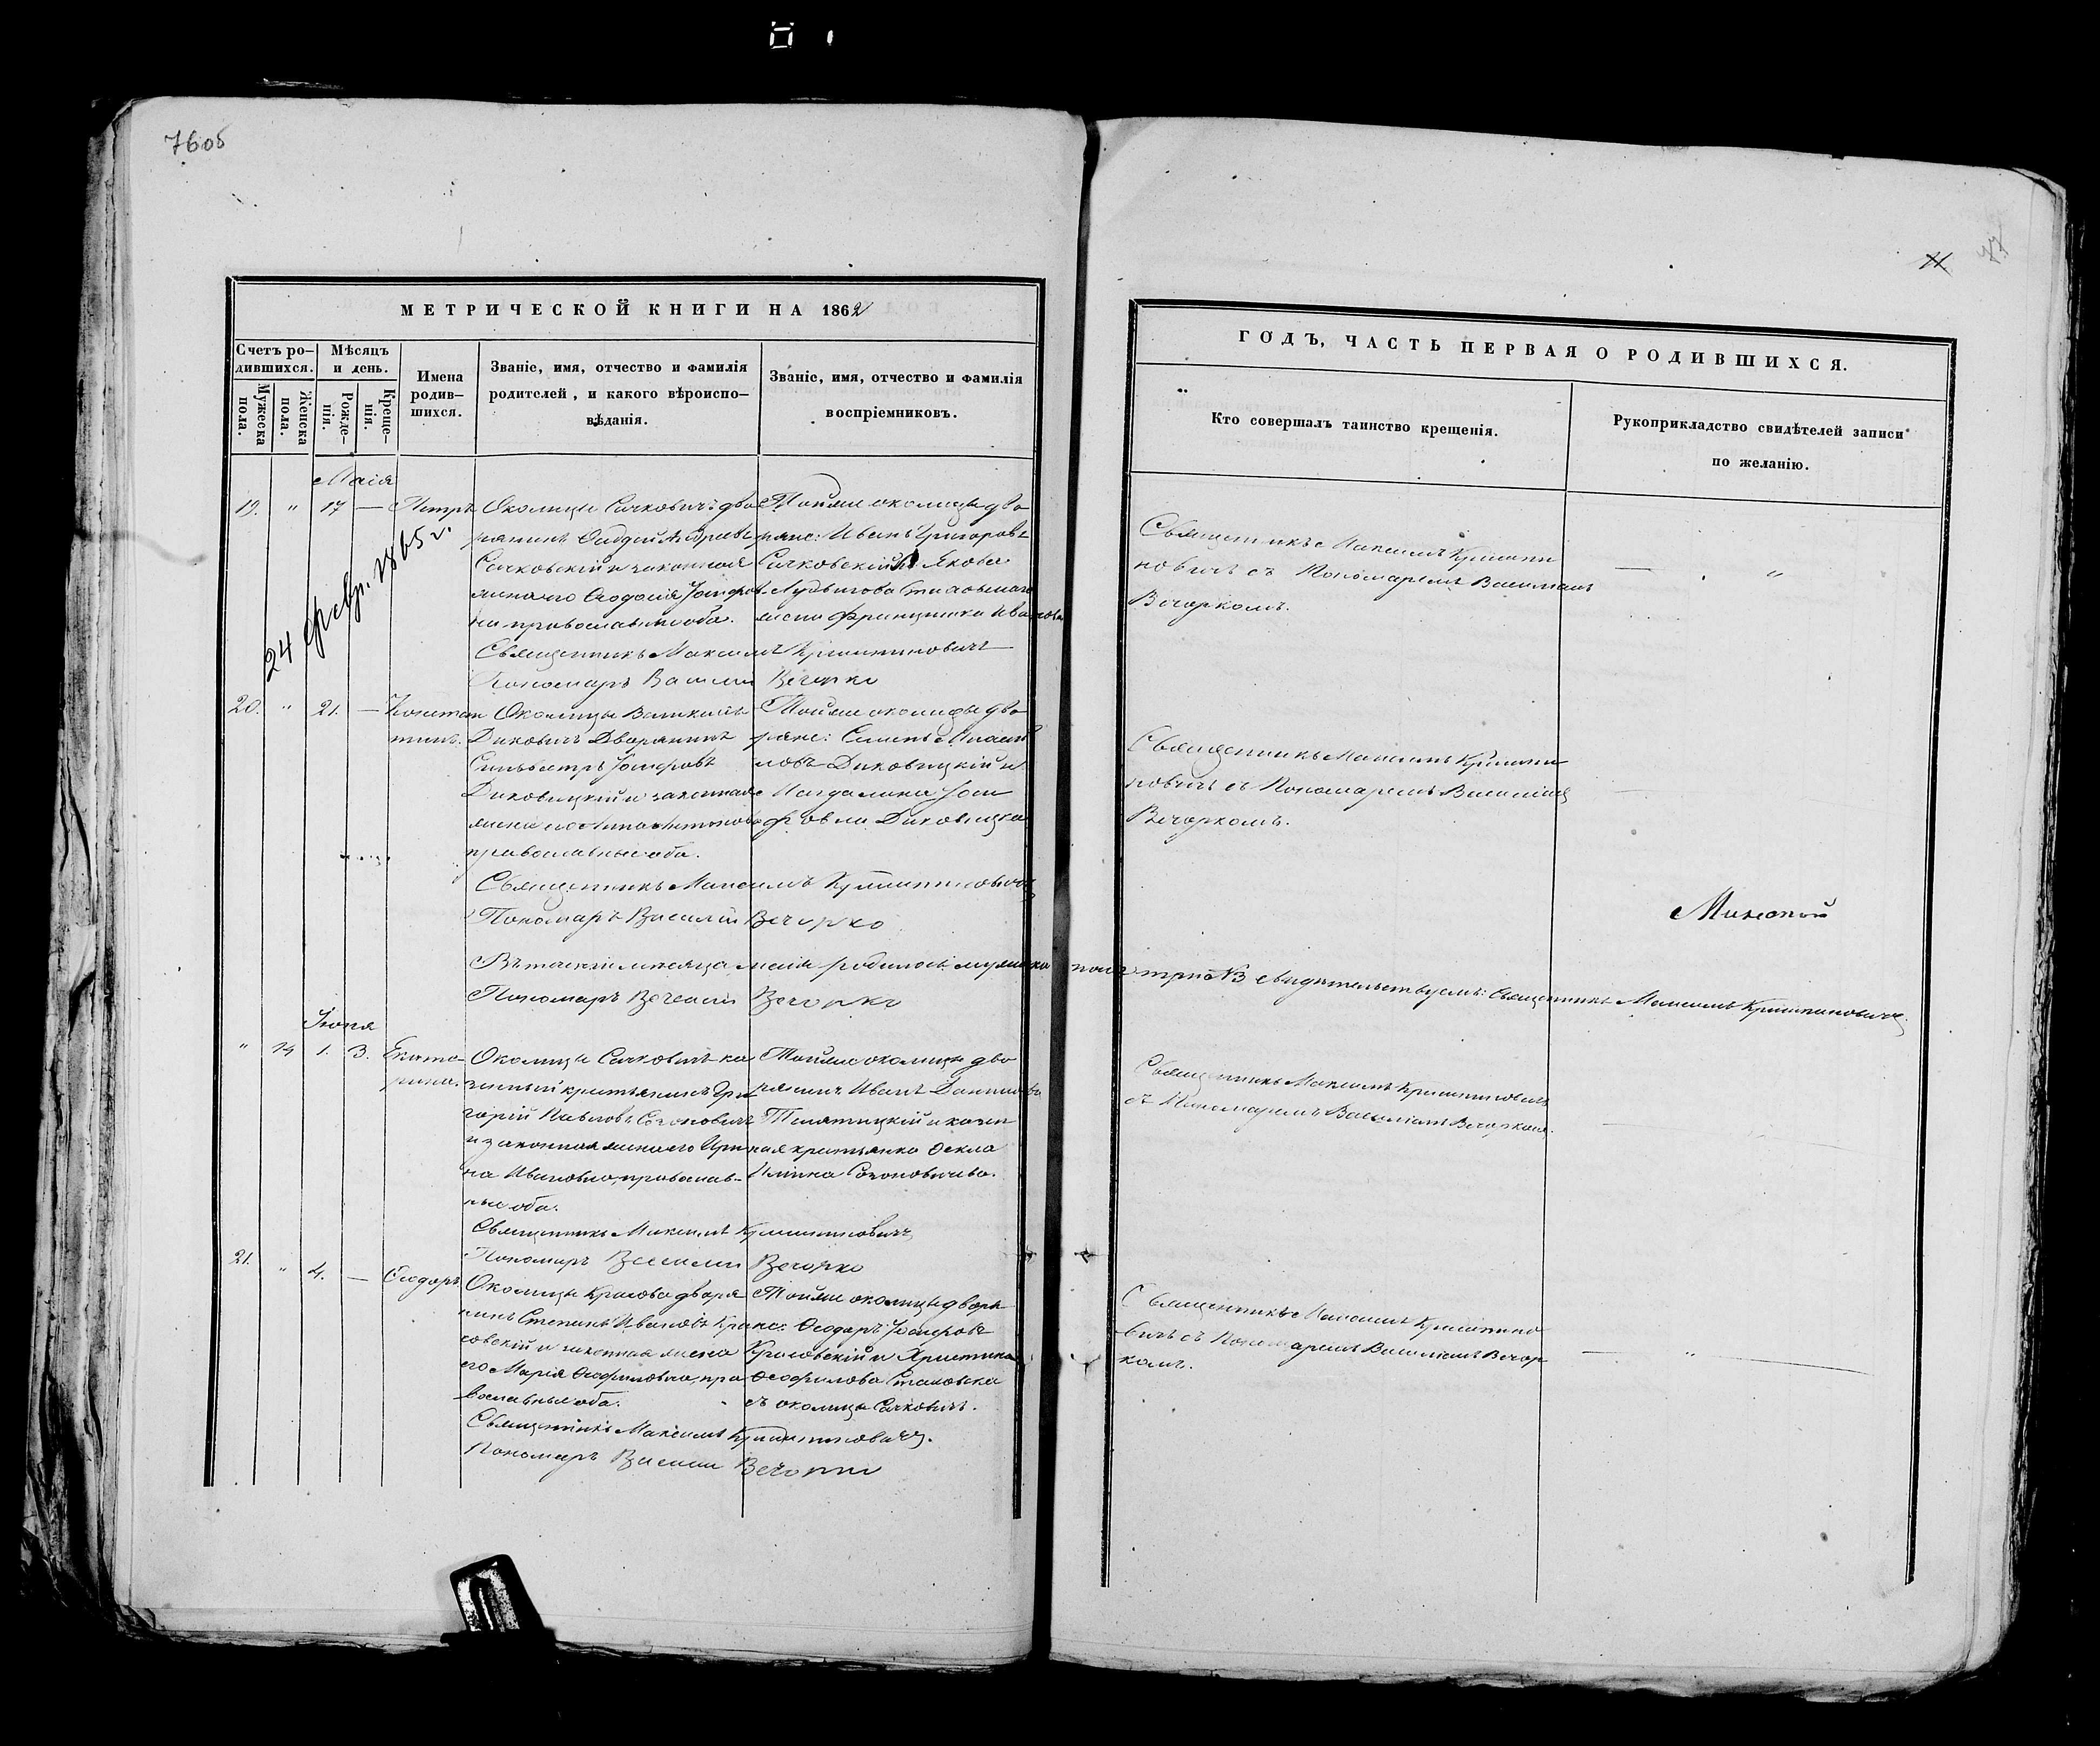 7605
МЕТРИЧЕСКОЙ КНИГИ НА 1862
Счетъ ро-
дившихся.
Мѣсяцъ
и день.
Мужеска
пола.
Женска
пола.
Рожде-
нія.
Креще-
нія.
Имена
родив-
шихся.
Званіе, имя, отчество и фамилія
родителей, и какого вѣроиспо-
вѣданія.
Званіе, имя, отчество и фамилія
воспріемниковъ.
Маія
19. " 17 — Петръ
24 февр. 1865 г.
Околицы Сачковичъ дво
Сачковскій и законная
жена его Ѳеодосія Іосифов
на православные оба.
Священникъ Максимъ Криштиновичъ
Пономарь Василій Вечорко
Тойже околицы дво
ряне: Иванъ Григоровъ
Сачковскій и Якова
жена Францишка Иванова
20. " 21. — Констан
тинъ.
Околицы Великихъ
Диковичъ Дворянинъ
Сильвестръ Іосифовъ
Диковицкій и законная
жена его Анна Антонова
православные оба.
Священникъ Максимъ Криштиновичъ
Пономарь Василій Вечорко
Тойже околицы дво
ряне:
ловъ Диковицкій и
Магдалина Іоси
фовна Диковицка
Пономарь Василій Вечорко
свидѣтельствуемъ: Священникъ Максимъ Криштиновичъ
Іюня
" 14 1. 3. Екате-
рина.
Околицы Сачковичъ ка
зенный крестьянинъ Гри
горій Павловъ Согоновичъ
и законная жена его Ири
на Ивановна, православ-
ные оба.
Священникъ Максимъ Криштиновичъ
Пономарь Василій Вечорко
Тойже околицы дво
рянинъ Иванъ Данилов
Телятицкій и казен
ная крестьянка Ѳекла
21. " 4. — Ѳеодоръ
Околицы Красова дворя
нинъ Степанъ Ивановъ Кра
совскій и законная жена
его Марія Ѳеофиловна, пра
вославные оба.
Священникъ Максимъ Криштиновичъ.
Пономарь Василій Вечорко
Тойже околицы дворя
не: Ѳеодоръ Іосифовъ
Красовскій и Христина
Ѳеофилова
съ околицы Сачковичъ.
ГОДЪ, ЧАСТЬ ПЕРВАЯ О РОДИВШИХСЯ.
Кто совершалъ таинство крещенія.
Рукоприкладство свидѣтелей записи
по желанію.
Священникъ Максимъ Кришти
новичъ съ Пономаремъ Василіемъ
Вечоркомъ.
Священникъ Максимъ Кришти
новичъ съ Пономаремъ Василіемъ
Вечоркомъ.
Минской
Священникъ Максимъ Криштиновичъ
съ Пономаремъ Василіемъ Вечоркомъ.
Священникъ Максимъ Криштино
вичъ съ Пономаремъ Василіемъ Вечор
комъ.